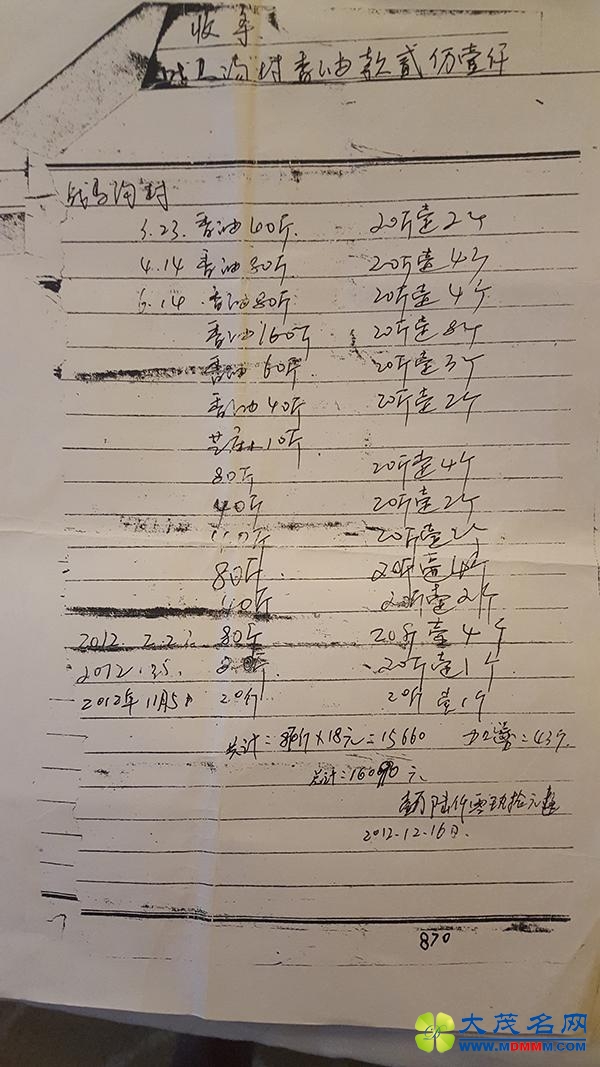 收条
香油款贰仟壹仟
3.23. 香油40斤. 20斤壶2个
4.14 香油80斤. 20斤壶4个
6.14 香油80斤. 20斤壶4个
香油160斤 20斤壶8个
香油60斤 20斤壶3个
香油40斤 20斤壶2个
10斤
80斤 20斤壶4个
40斤 20斤壶2个
40斤 20斤壶2个
80斤. 20斤壶4个
40斤 20斤壶2个
2012. 2.2 80斤 20斤壶4个
2012. 20斤壶1个
2012年11月5日 20斤 20斤壶1个
共计=870斤×18元=15660 =43个.
总计=16090元
壹万陆仟零玖拾元整
2012.12.16日.
870
大茂名网
WWW.MDMMM.COM